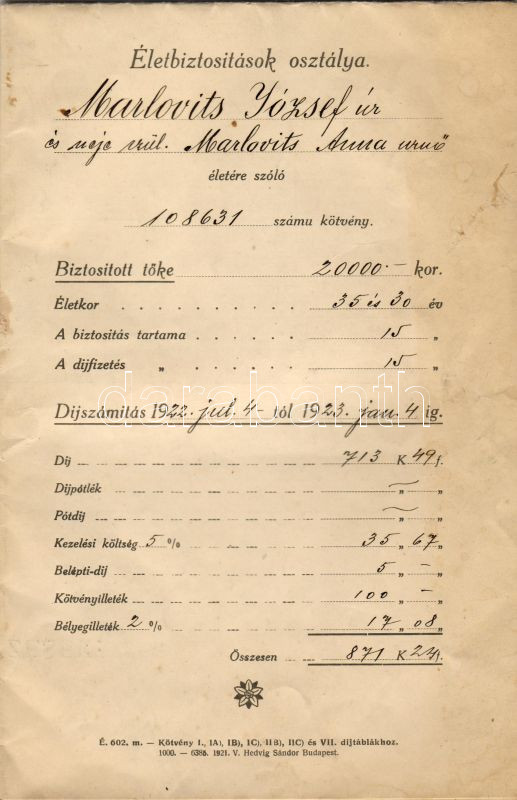 Életbiztositások osztálya.
Marlovits József úr
és neje szül. Marlovits Anna urnő
életére szóló
108631 számu kötvény.
Biztositott tőke 20000.— kor.
Életkor 35 és 30 év
A biztositás tartama 15 „
A dijfizetés „ 15 „
darabanth
Dijszámitás 1922. jul. 4-től 1923. jan. 4 ig.
Dij 713 K 49 f.
Dijpótlék — „ — „
Pótdij — „ — „
Kezelési költség 5 % 35 „ 67 „
Belépti-dij 5 „ — „
Kötvényilleték 100 „ — „
Bélyegilleték 2 % 17 „ 08 „
Összesen 871 K 24 f.
É. 602. m. — Kötvény I., IA), IB), IC), IIB), IIC) és VII. dijtáblákhoz.
1000. — 6385. 1921. V. Hedvig Sándor Budapest.